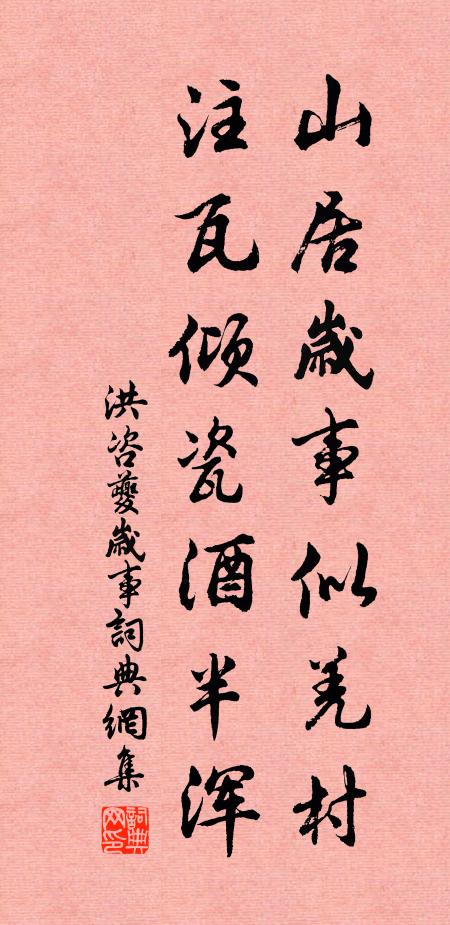 山居岁事似羌村
注瓦倾瓷酒半浑
洪咨夔岁事詞典網集
詞典网印